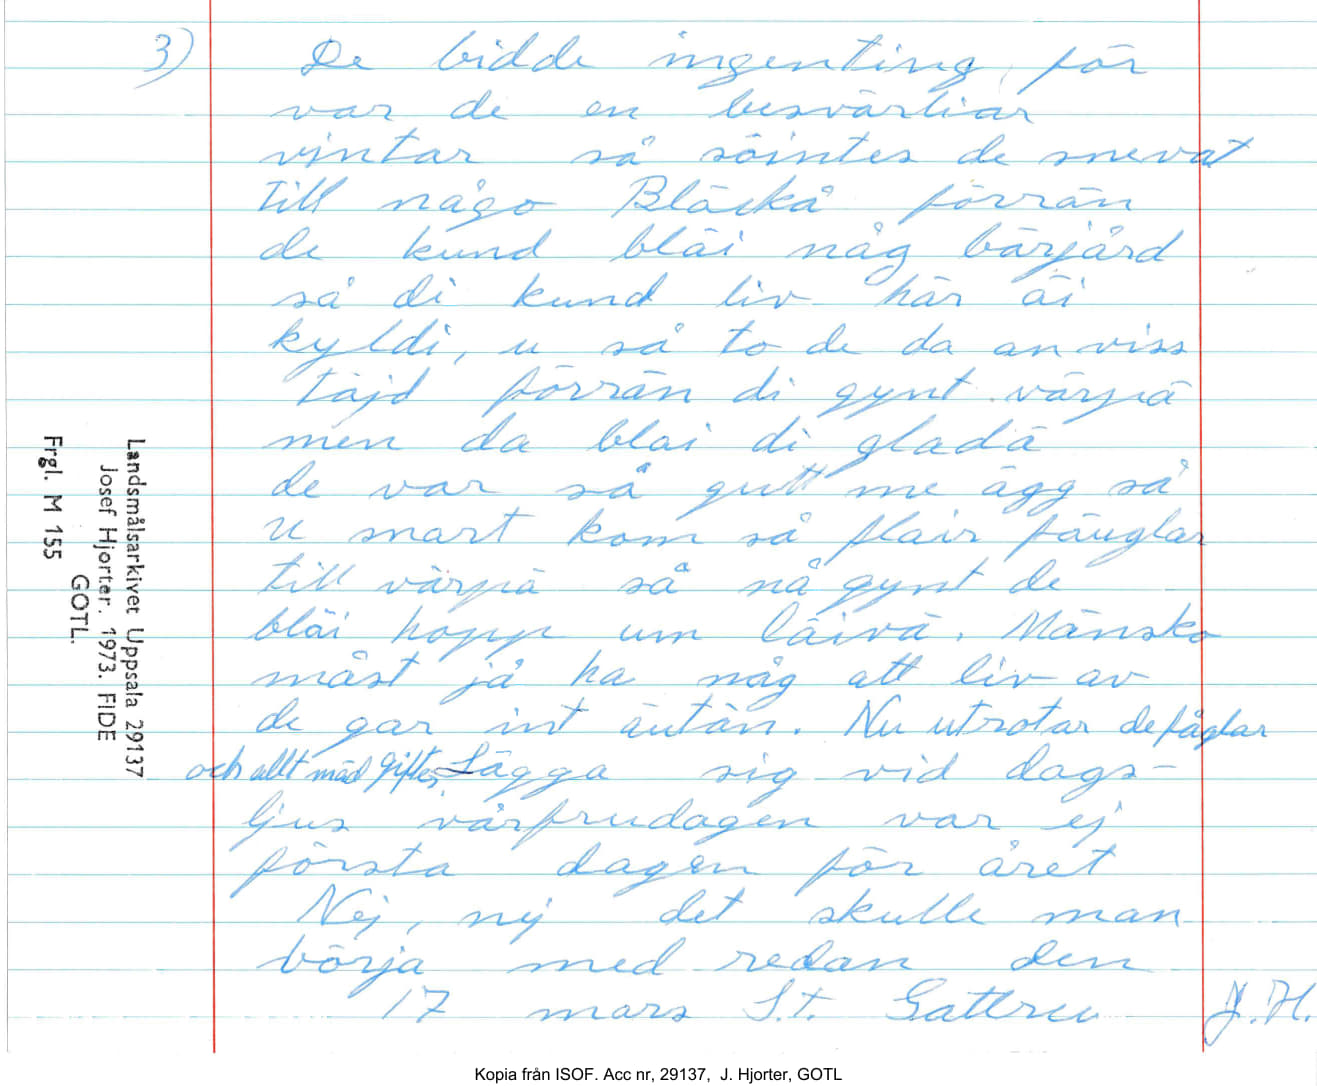 3) De bidde ingenting för
var de en besvärliar
vintar så söintes de snevat
till någo Bläckå förrän
de kund bläi någ bärjård
så di kund liv här äi
kyldi, u så to de da an viss
täjd förrän di gynt värpä
men da blai di gladä
de var så gutt me ägg så
u snart kom så flair fäuglar
till värpä så nå gynt de
bläi hopp um läivä. Mänsko
måst jå ha någ att liv av
de gar int äutän. Nu utrotar de fåglar
och allt mäd gifter, Lägga sig vid dags-
ljus vårfrudagen var ej
första dagen för året
Nej, nej det skulle man
börja med redan den
17 mars S.t. Gattru J.H.
Landsmålsarkivet Uppsala 29137
Josef Hjorter. 1973. FIDE
GOTL.
Frgl. M 155
Kopia från ISOF. Acc nr, 29137, J. Hjorter, GOTL